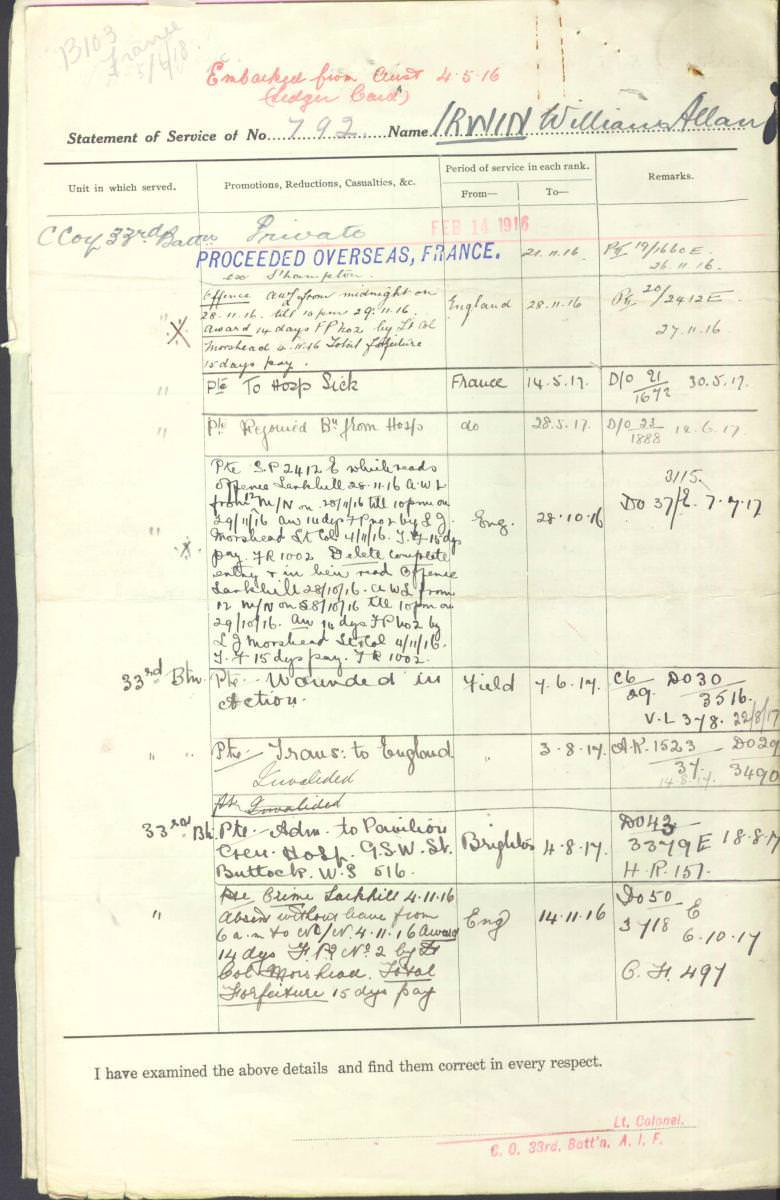 B103
France
5/4/18
Embarked from Aust 4.5.16
(Ledger Card)
Statement of Service of No. 792 Name IRWIN William Allan
Unit in which served. Promotions, Reductions, Casualties, &c. Period of service in each rank. From— To— Remarks.
C Coy 33rd Battn Private FEB 14 1916
PROCEEDED OVERSEAS, FRANCE. 21.11.16 19/1660E
ex S'hampton. 26.11.16.
Offence awl from midnight on England 28.11.16 20/2412E
28.11.16. till 10 pm 29.11.16.
" X Award 14 days FP No2 by Lt Col 27.11.16
Morshead 4.11.16 Total forfeiture
15 days pay.
" Pte To Hosp Sick France 14.5.17. D/O 21/1672 30.5.17.
" Pte Rejoined Bn from Hosp do 28.5.17. D/O 23/1888 12.6.17
Pte S.P 2412 E while reads
offence Larkhill 28.11.16 A.W.L
from 12 M/N on 28/11/16 till 10 pm on 3115
29/11/16 aw 14 dys FP no2 by L J. Eng. 28.10.16 DO 37/E. 7.7.17
" X Morshead Lt Col 4/11/16. T.F 15 dys
pay. FR 1002 Delete complete
entry & in lieu read Offence
Larkhill 28/10/16. AWL from
12 M/N on 28/10/16 till 10 pm on
29/10/16. aw 14 dys FP no2 by
L J Morshead Lt Col 4/11/16.
T.F 15 dys pay. F R 1002.
33rd Btn. Pte. Wounded in Field 7.6.17. C6/29 DO30/3516.
Action. V.L 378. 22/8/17
" " Pte Trans: to England " 3.8.17. A.R. 1523/37. DO29/3490
Invalided 14.8.17.
Pte Invalided
33rd Bn. Pte. Adm. to Pavilion Brighton 4.8.17. DO43
Gen. Hosp. G.S.W. St. 3379 E 18.8.17
Buttock. W.S 516. H.R. 157.
Pte Crime Larkhill 4.11.16 DO50
" Absent without leave from Eng 14.11.16 3718 E
6 a.m to M/N. 4.11.16 Award 6.10.17
14 dys F.P. No 2 by Lt
Col Morshead. Total C.F. 497
Forfeiture 15 dys pay
I have examined the above details and find them correct in every respect.
Lt. Colonel.
C. O. 33rd. Batt'n. A. I. F.